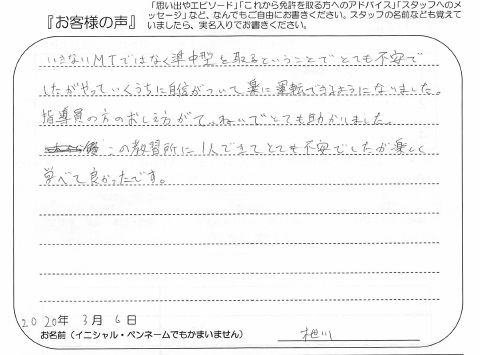 『お客様の声』
「思い出やエピソード」「これから免許を取る方へのアドバイス」「スタッフへのメッセージ」など、なんでもご自由にお書きください。スタッフの名前なども覚えていましたら、実名入りでお書きください。
いきないMTではなく準中型を取るということでとても不安で
したがやっていくうちに自信がついて楽に運転できるようになりました。
指導員の方のおしえ方がていねいでとても助かりました。
この教習所に1人できてとても不安でしたが楽しく
学べて良かったです。
2020年 3月 6日
お名前(イニシャル・ペンネームでもかまいません)